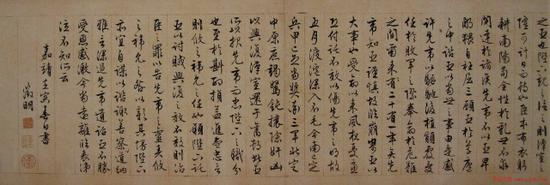 之臣也願陛下親之信之則漢室之
隆可計日而待也臣本布衣躬
耕南陽苟全性命於亂世不求
聞達於諸侯先帝不以臣卑
鄙猥自枉屈三顧臣於草廬
之中諮臣以當世之事由是感激
許先帝以驅馳後值傾覆受
任於敗軍之際奉命於危難
之間爾來二十有一年矣先
帝知臣謹慎故臨崩寄臣以
大事也受命以來夙夜憂嘆恐
付託不效以傷先帝之明故
五月渡瀘深入不毛今南方已定
兵甲已足當獎率三軍北定
中原庶竭駑鈍攘除奸凶
以興復漢室還于舊都此臣
所以報先帝而忠陛下之職分
也至於斟酌損益進盡忠言
則攸之禕允之任也願陛下託
臣以討賊興復之效不效則治
臣之罪以告先帝之靈若無
之禕允之咎以彰其慢陛下
亦宜自謀以諮諏善道察納
雅言深追先帝遺詔臣不勝
受恩感激今當遠離臨表涕
泣不知所云
嘉靖壬寅春日書
徵明